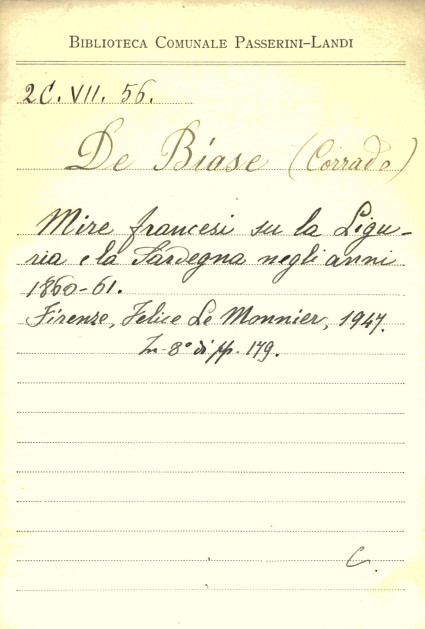 BIBLIOTECA COMUNALE PASSERINI-LANDI
2C. VII. 56.
De Biase (Corrado)
Mire francesi su la Ligu-
ria e la Sardegna negli anni
1860-61.
Firenze, Felice Le Monnier, 1947.
In-8° di pp. 179.
C.